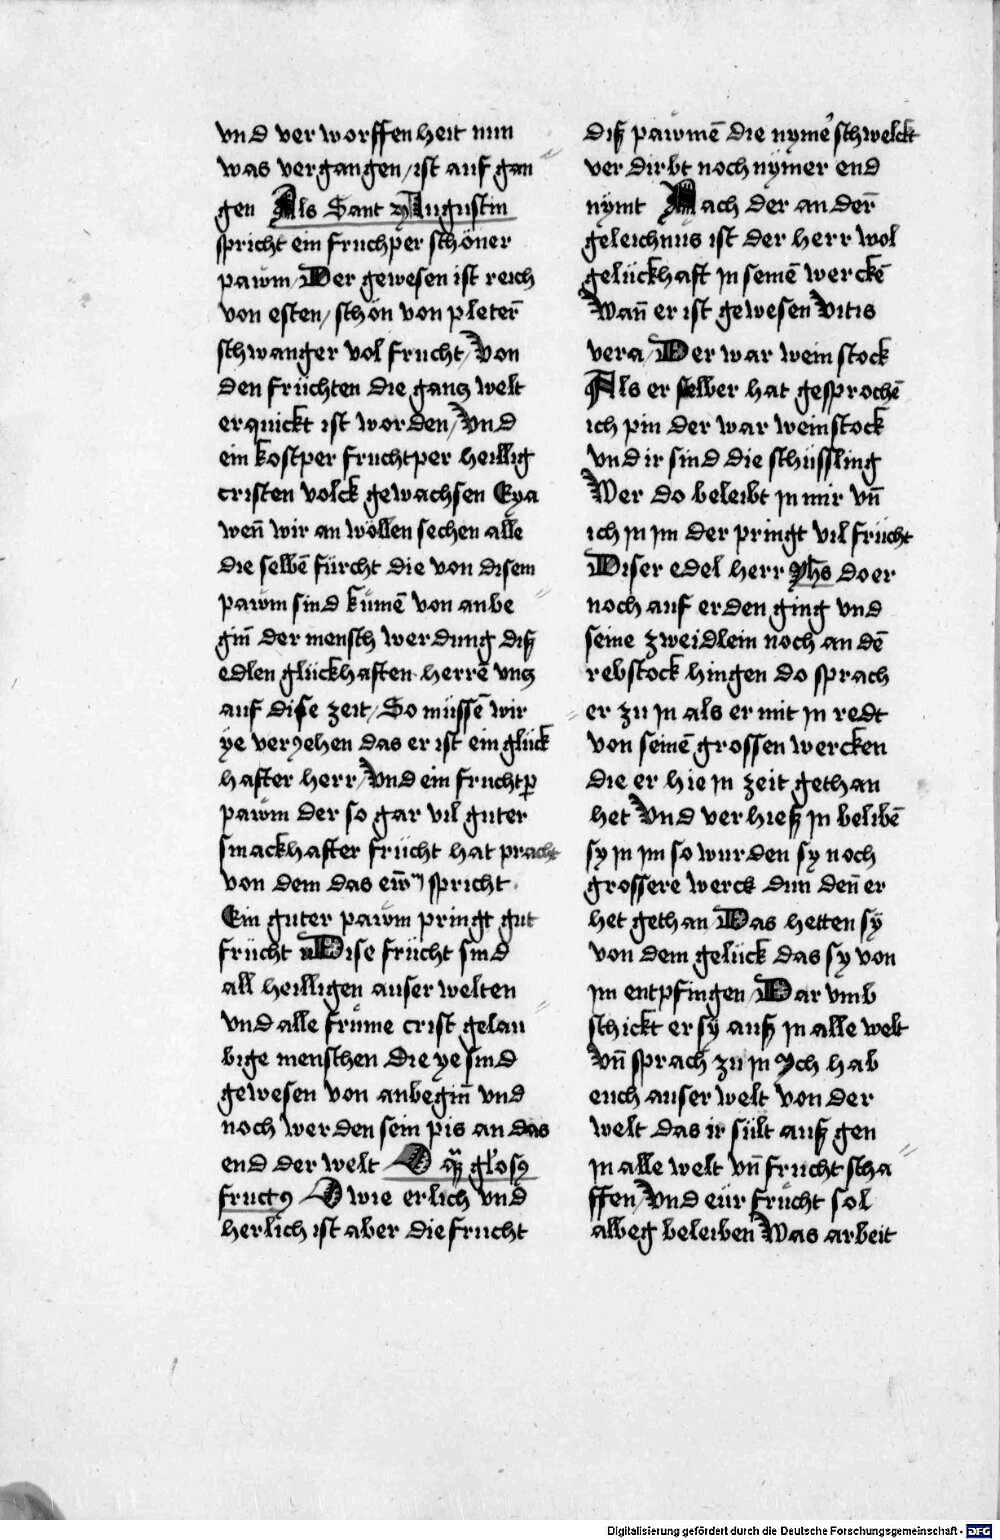 vnd ver worffenheit nun
was vergangen / ist auf gan
gen Als Sant Augustin
spricht ein fruchper schöner
pawm / Der gewesen ist reich
von esten / schön von pleter̄
schwanger vol frucht / Von
den früchten die gancz welt
erquickt ist worden / Vnd
ein kostper fruchtper heillig
cristen volck gewachsen Eya
wen̄ wir an wöllen sechen alle
die selbē fürcht die von disem
pawm sind kumē von anbe
gin̄ der mensch werdung diß
edlen glückhaften herrē vncz
auf dise zeit / So müssē wir
ye veryehen das er ist ein glück
hafter herr / Vnd ein fruchtꝑ
pawm der so gar vil guter
smackhafter frücht hat pracht
von dem das ew̄ spricht
Ein guter pawm pringt gut
frücht Dise frücht sind
all heilligen auser welten
vnd alle frume crist gelau
bige menschen die ye sind
gewesen von anbegin̄ vnd
noch werden sein pis an das
end der welt O q̈ȝ glosꝯ
fructꝯ O wie erlich vnd
herlich ist aber die frucht
diß pawmē die nymer schwelckt
ver dirbt noch nymer end
nymt Nach der ander̄
geleichnus ist der herr wol
gelückhaft jn seinē werckē
Wan̄ er ist gewesen Vitis
vera / Der war weinstock
Als er selber hat gesprochē
ich pin der war weinstock
vnd ir sind die schüssling
Wer do beleibt jn mir vn̄
ich jn jm der pringt vil frücht
Diser edel herr yhs do er
noch auf erden ging vnd
seine zweidlein noch an dē
rebstock hingen do sprach
er zu jn als er mit jn redt
von seinē grossen wercken
die er hie jn zeit gethan
het Vnd verhieß jn belibē
sy jn jm so wurden sy noch
grossere werck dun den̄ er
het gethan Das hetten sy
von dem gelück das sy von
jm entpfingen / Dar vmb
schickt er sy auß jn alle welt
Vn̄ sprach zu jn Ych hab
euch auser welt von der
welt das ir sült auß gen
jn alle welt vn̄ frucht scha
ffen / Vnd eür frucht sol
albeg beleiben Was arbeit
Digitalisierung gefördert durch die Deutsche Forschungsgemeinschaft - DFG